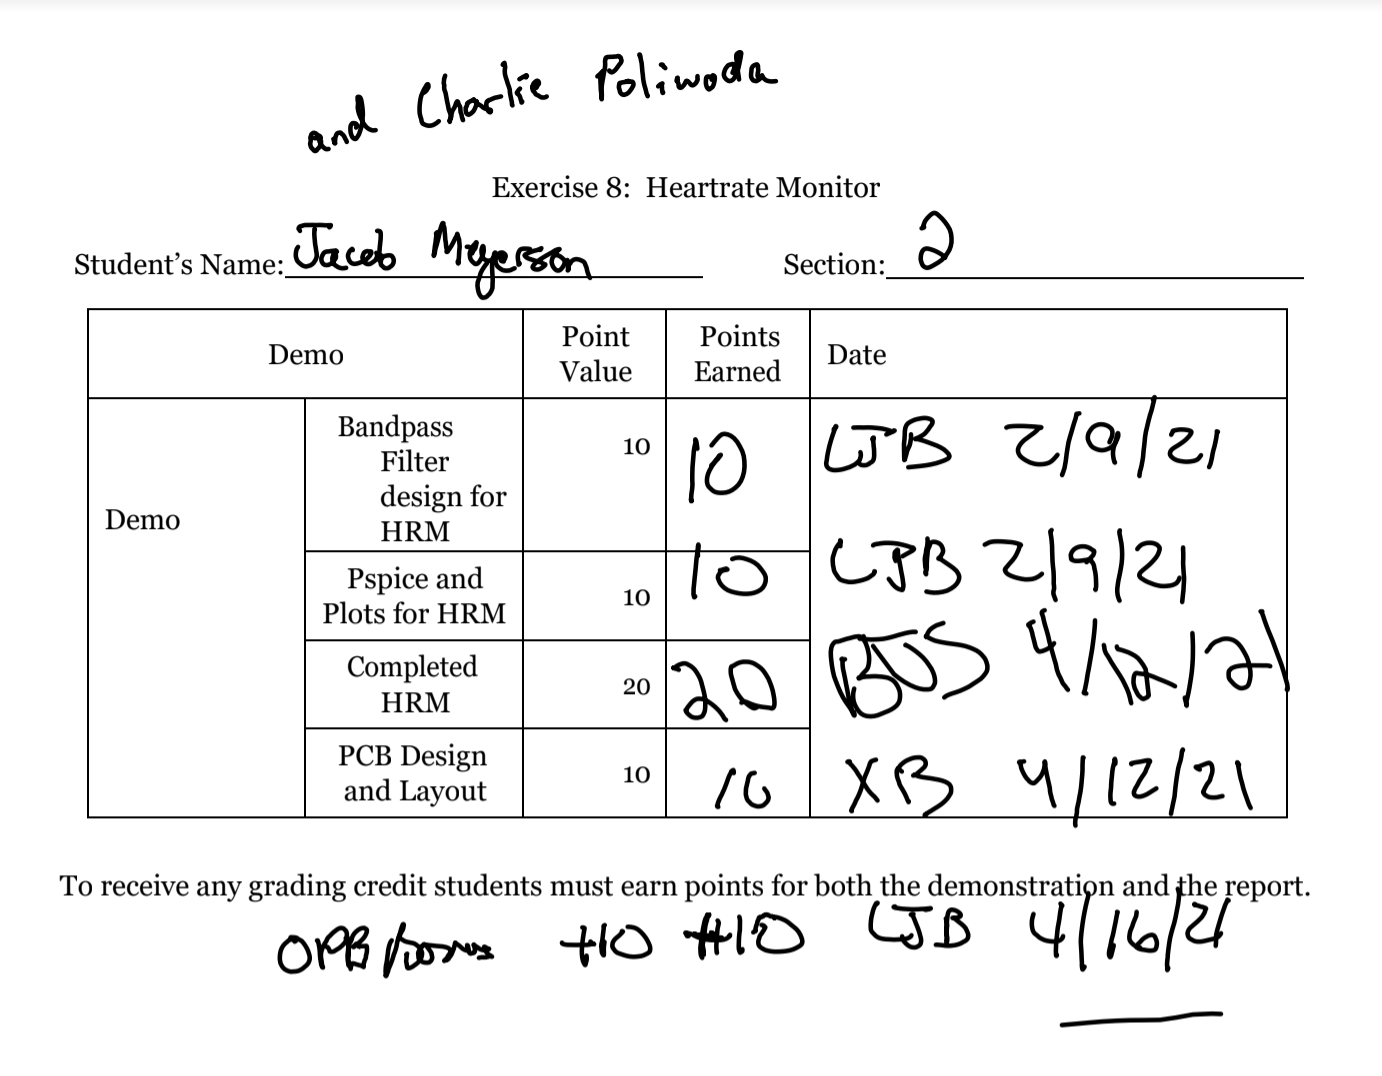 and Charlie Poliwoda
Exercise 8: Heartrate Monitor
Student's Name: Jacob Meyerson Section: 2
Demo Point Value Points Earned Date
Demo
Bandpass Filter design for HRM 10 10 LJB 2/9/21
Pspice and Plots for HRM 10 10 LJB 2/9/21
Completed HRM 20 20 4/12/21
PCB Design and Layout 10 10 XB 4/12/21
To receive any grading credit students must earn points for both the demonstration and the report.
OPB bonus +10 +10 LJB 4/16/21